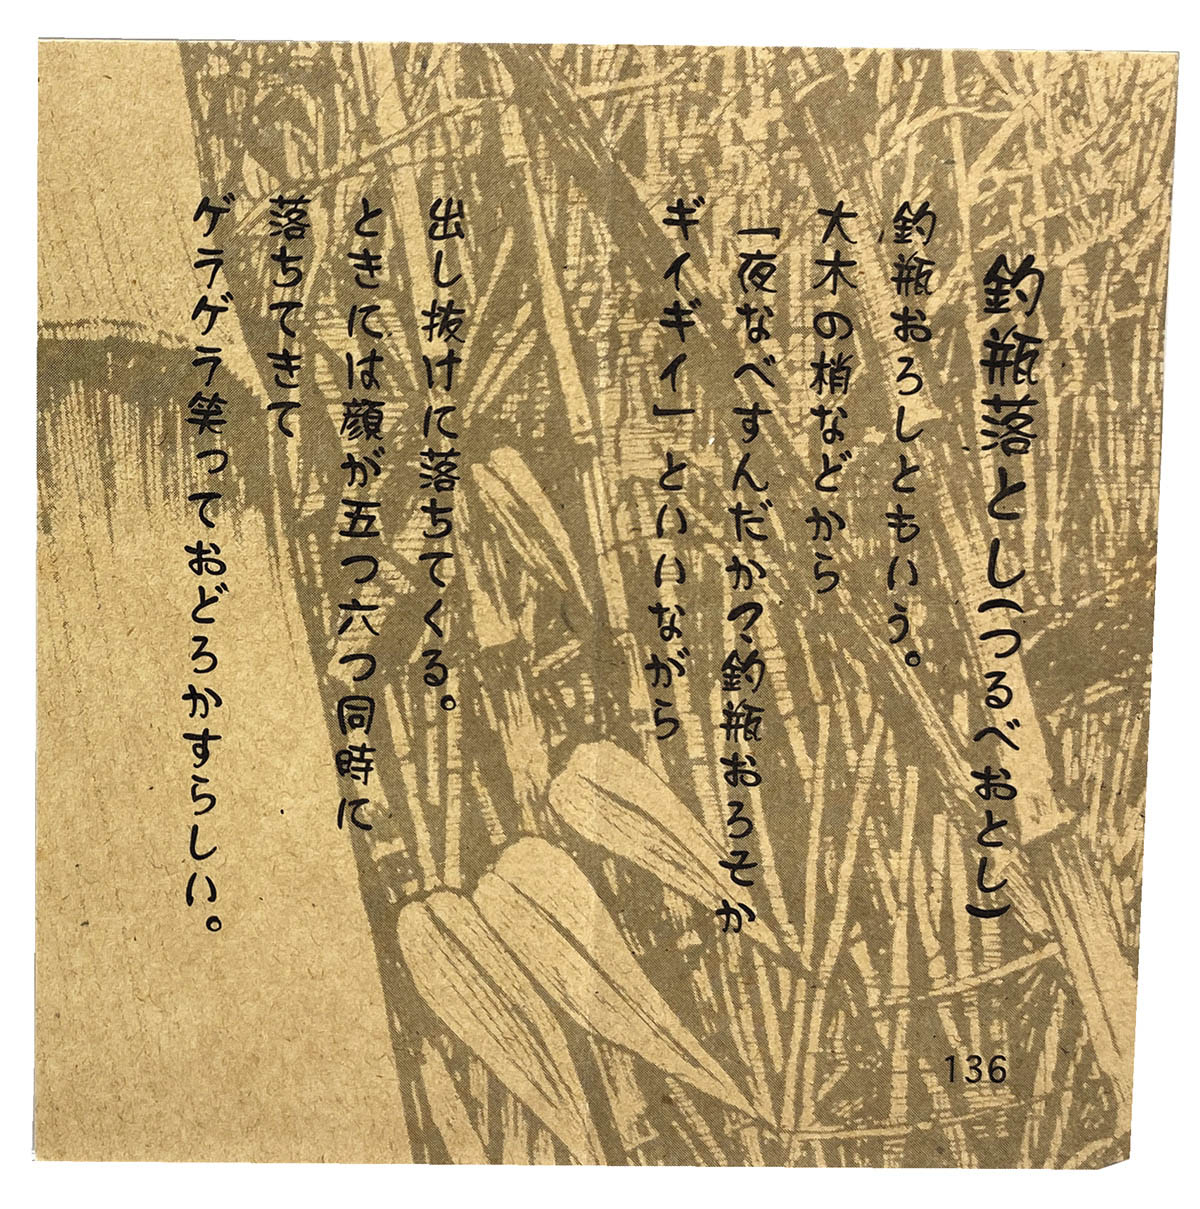 釣瓶落とし(つるべおとし)
釣瓶おろしともいう。
大木の梢などから
「夜なべすんだか?釣瓶おろそか
ギイギイ」といいながら
出し抜けに落ちてくる。
ときには顔が五つ六つ同時に
落ちてきて
ゲラゲラ笑っておどろかすらしい。
136